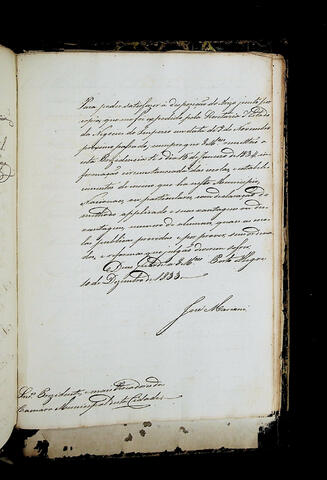 Para poder satisfazer á disposição do Avizo junto por
copia, que me foi expedido pela Secretaria d'Estado
dos Negocios do Imperio em data de 7 de Novembro
proximo passado, cumpre que V Mces remettão a
esta Presidencia té o dia 15 de Janeiro de 1834, in-
formação circumstanciada das escolas, e estabele-
cimentos de ensino que ha neste Municipio,
Nacionaes, ou particulares, com declaração do
methodo applicado e suas vantagens ou des-
vantagens, numero de alumnos, quaes as esco-
las publicas providas e por prover, seus ordena-
dos, e reformas que julgão devem soffrer.
Deos Guarde a V Mces Porto Alegre
10 de Dezembro de 1833.
José Mariani
Snrs. Presidente e mais Vereadores da
Camara Municipal desta Cidade